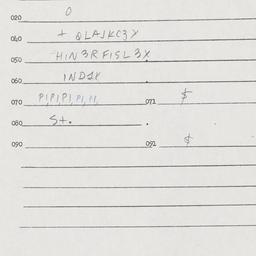 020 0
040 + QLAJKC3Y
050 HIN3RFISL3X
060 INDSX
070 P1P1P1, P1, P1, 071 $
080 St.
090 091 $